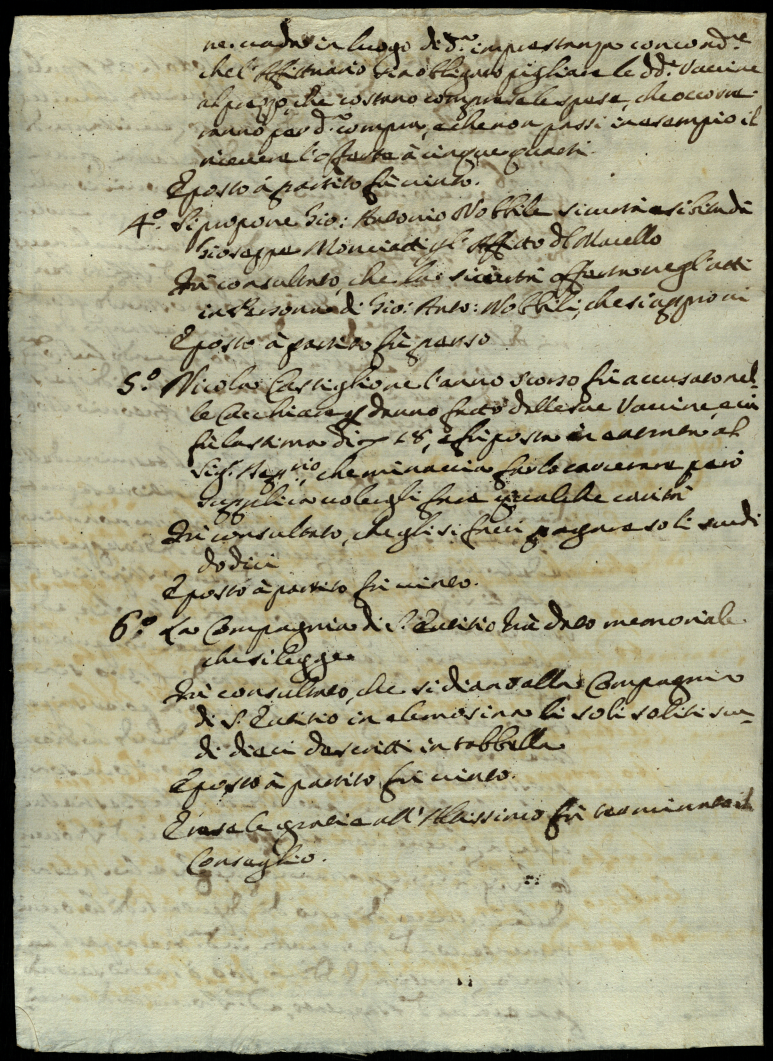 ne: vada in luogo di d.ª imprestanza con cond.e
che l'Affittuario sia obligato pigliare le dd.e Vaccine
al prezzo, che costano comprese le spese, che occorre
ranno per d.ª compra, e che non passi in esempio il
ricevere l'offerte à cinque quatri.
E posto à partito fù vinto.
4.º Si propone Gio: Antonio Nobbile sicurtà esibita di
Gioseppe per l'Affitto del Macello
Fù consultato, che la sicurtà offerta negl'atti
in Persona di Gio: Anto: Nobbili, che si approvi
E posto à partito fù perso
5.º Nicola Castiglione l'anno scorso fù accusato nel-
le danno fatto dalle sue Vaccine, e
fù la stima di 18, e fù posta in entrata al
Sig.r che minaccia farlo carcerare, però
supplica volergli fare qualche carità
Fù consultato, che gli si facci pagare soli scudi
dodici
E posto à partito fù vinto.
6.º La Compagnia di S. Eutitio hà dato memoriale
che si legge
Fù consultato, che si diano alla Compagnia
di S. Eutitio in elemosina li soli soliti scu-
di dieci descritti in tabbella
E posto à partito fù vinto.
E rese le gratie all'Altissimo fù terminato il
Conseglio.